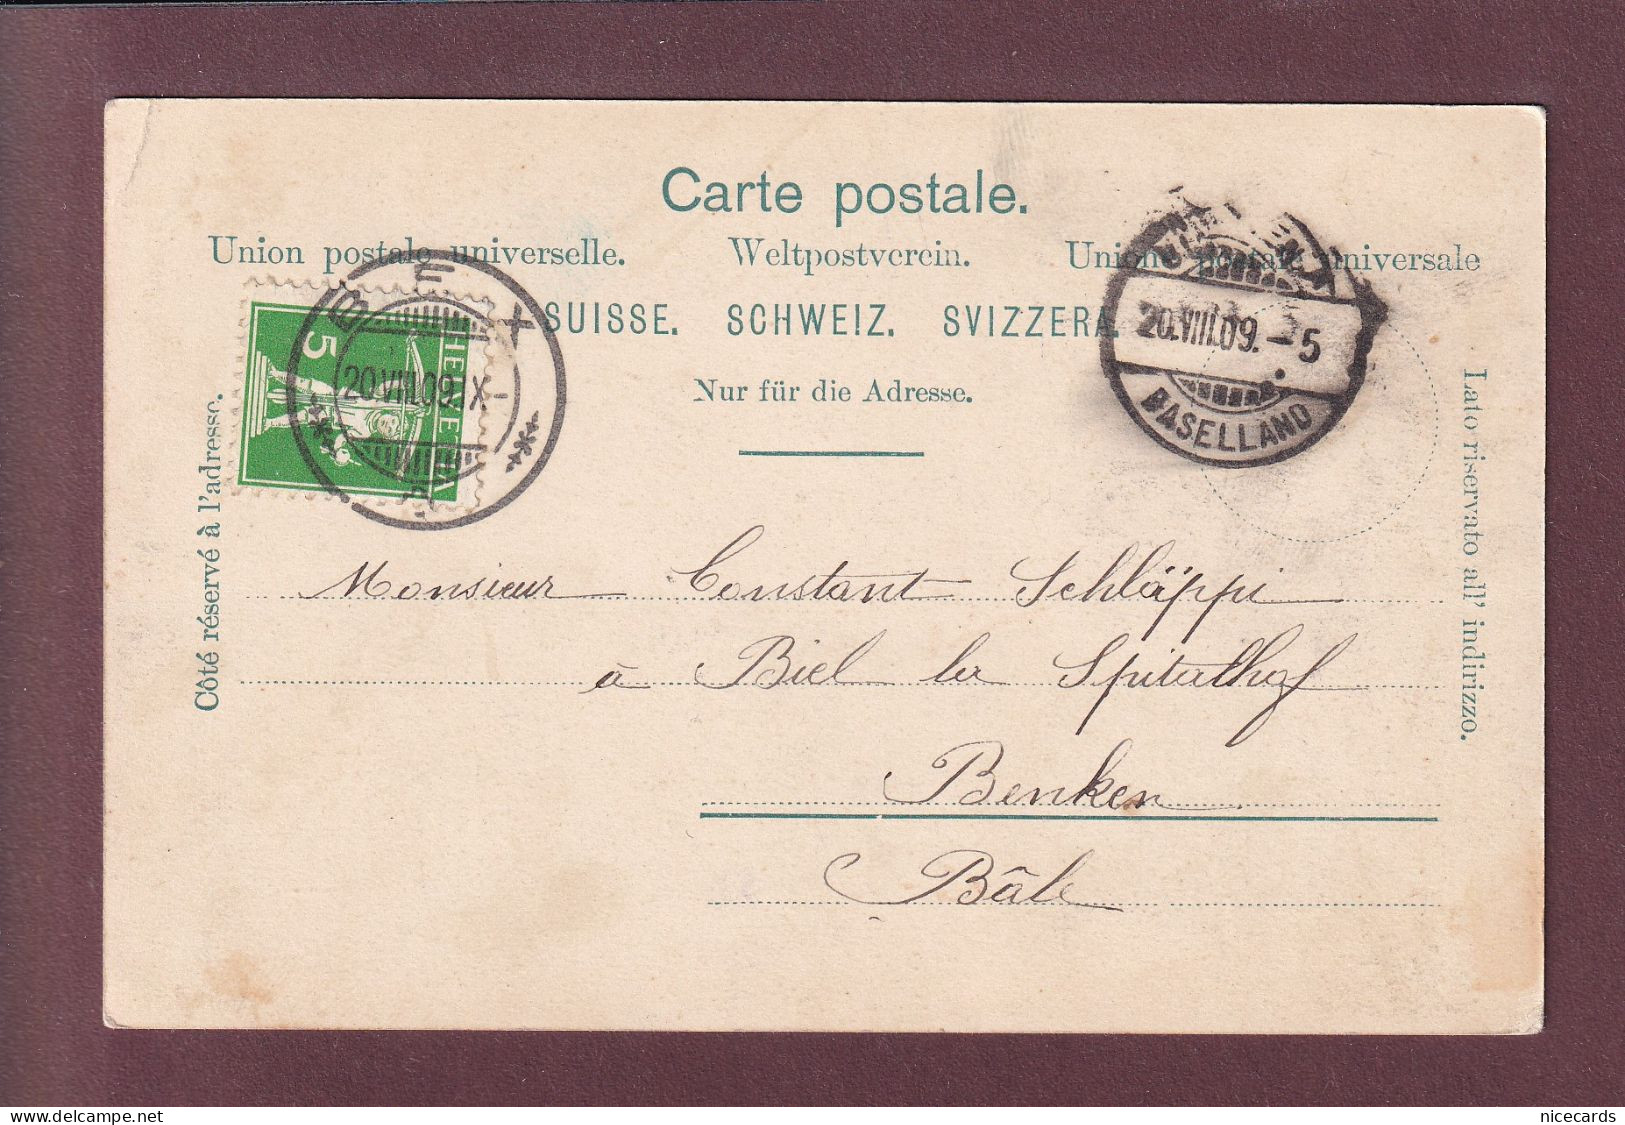 Carte postale.
Union postale universelle. Weltpostverein. Unione postale universale
SUISSE. SCHWEIZ. SVIZZERA.
Nur für die Adresse.
Côté réservé à l'adresse.
Lato riservato all' indirizzo.
HELVETIA
5
BEX
20.VIII.09.IX
20.VIII.09.-5
BASELLAND
Monsieur Constant Schläppi
à Biel la Spitalhof
Benken
Bâle
nicecards
delcampe.net